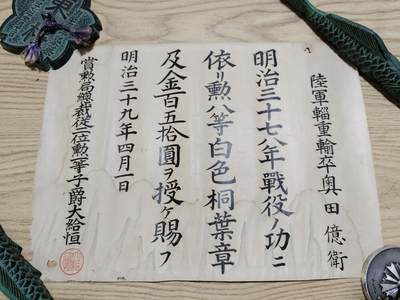 陸軍輜重輸卒奥田億衛
明治三十七八年戰役ノ功ニ
依リ勲八等白色桐葉章
及金百五拾圓ヲ授ケ賜フ
明治三十九年四月一日
賞勲局總裁從二位勲一等子爵大給恒